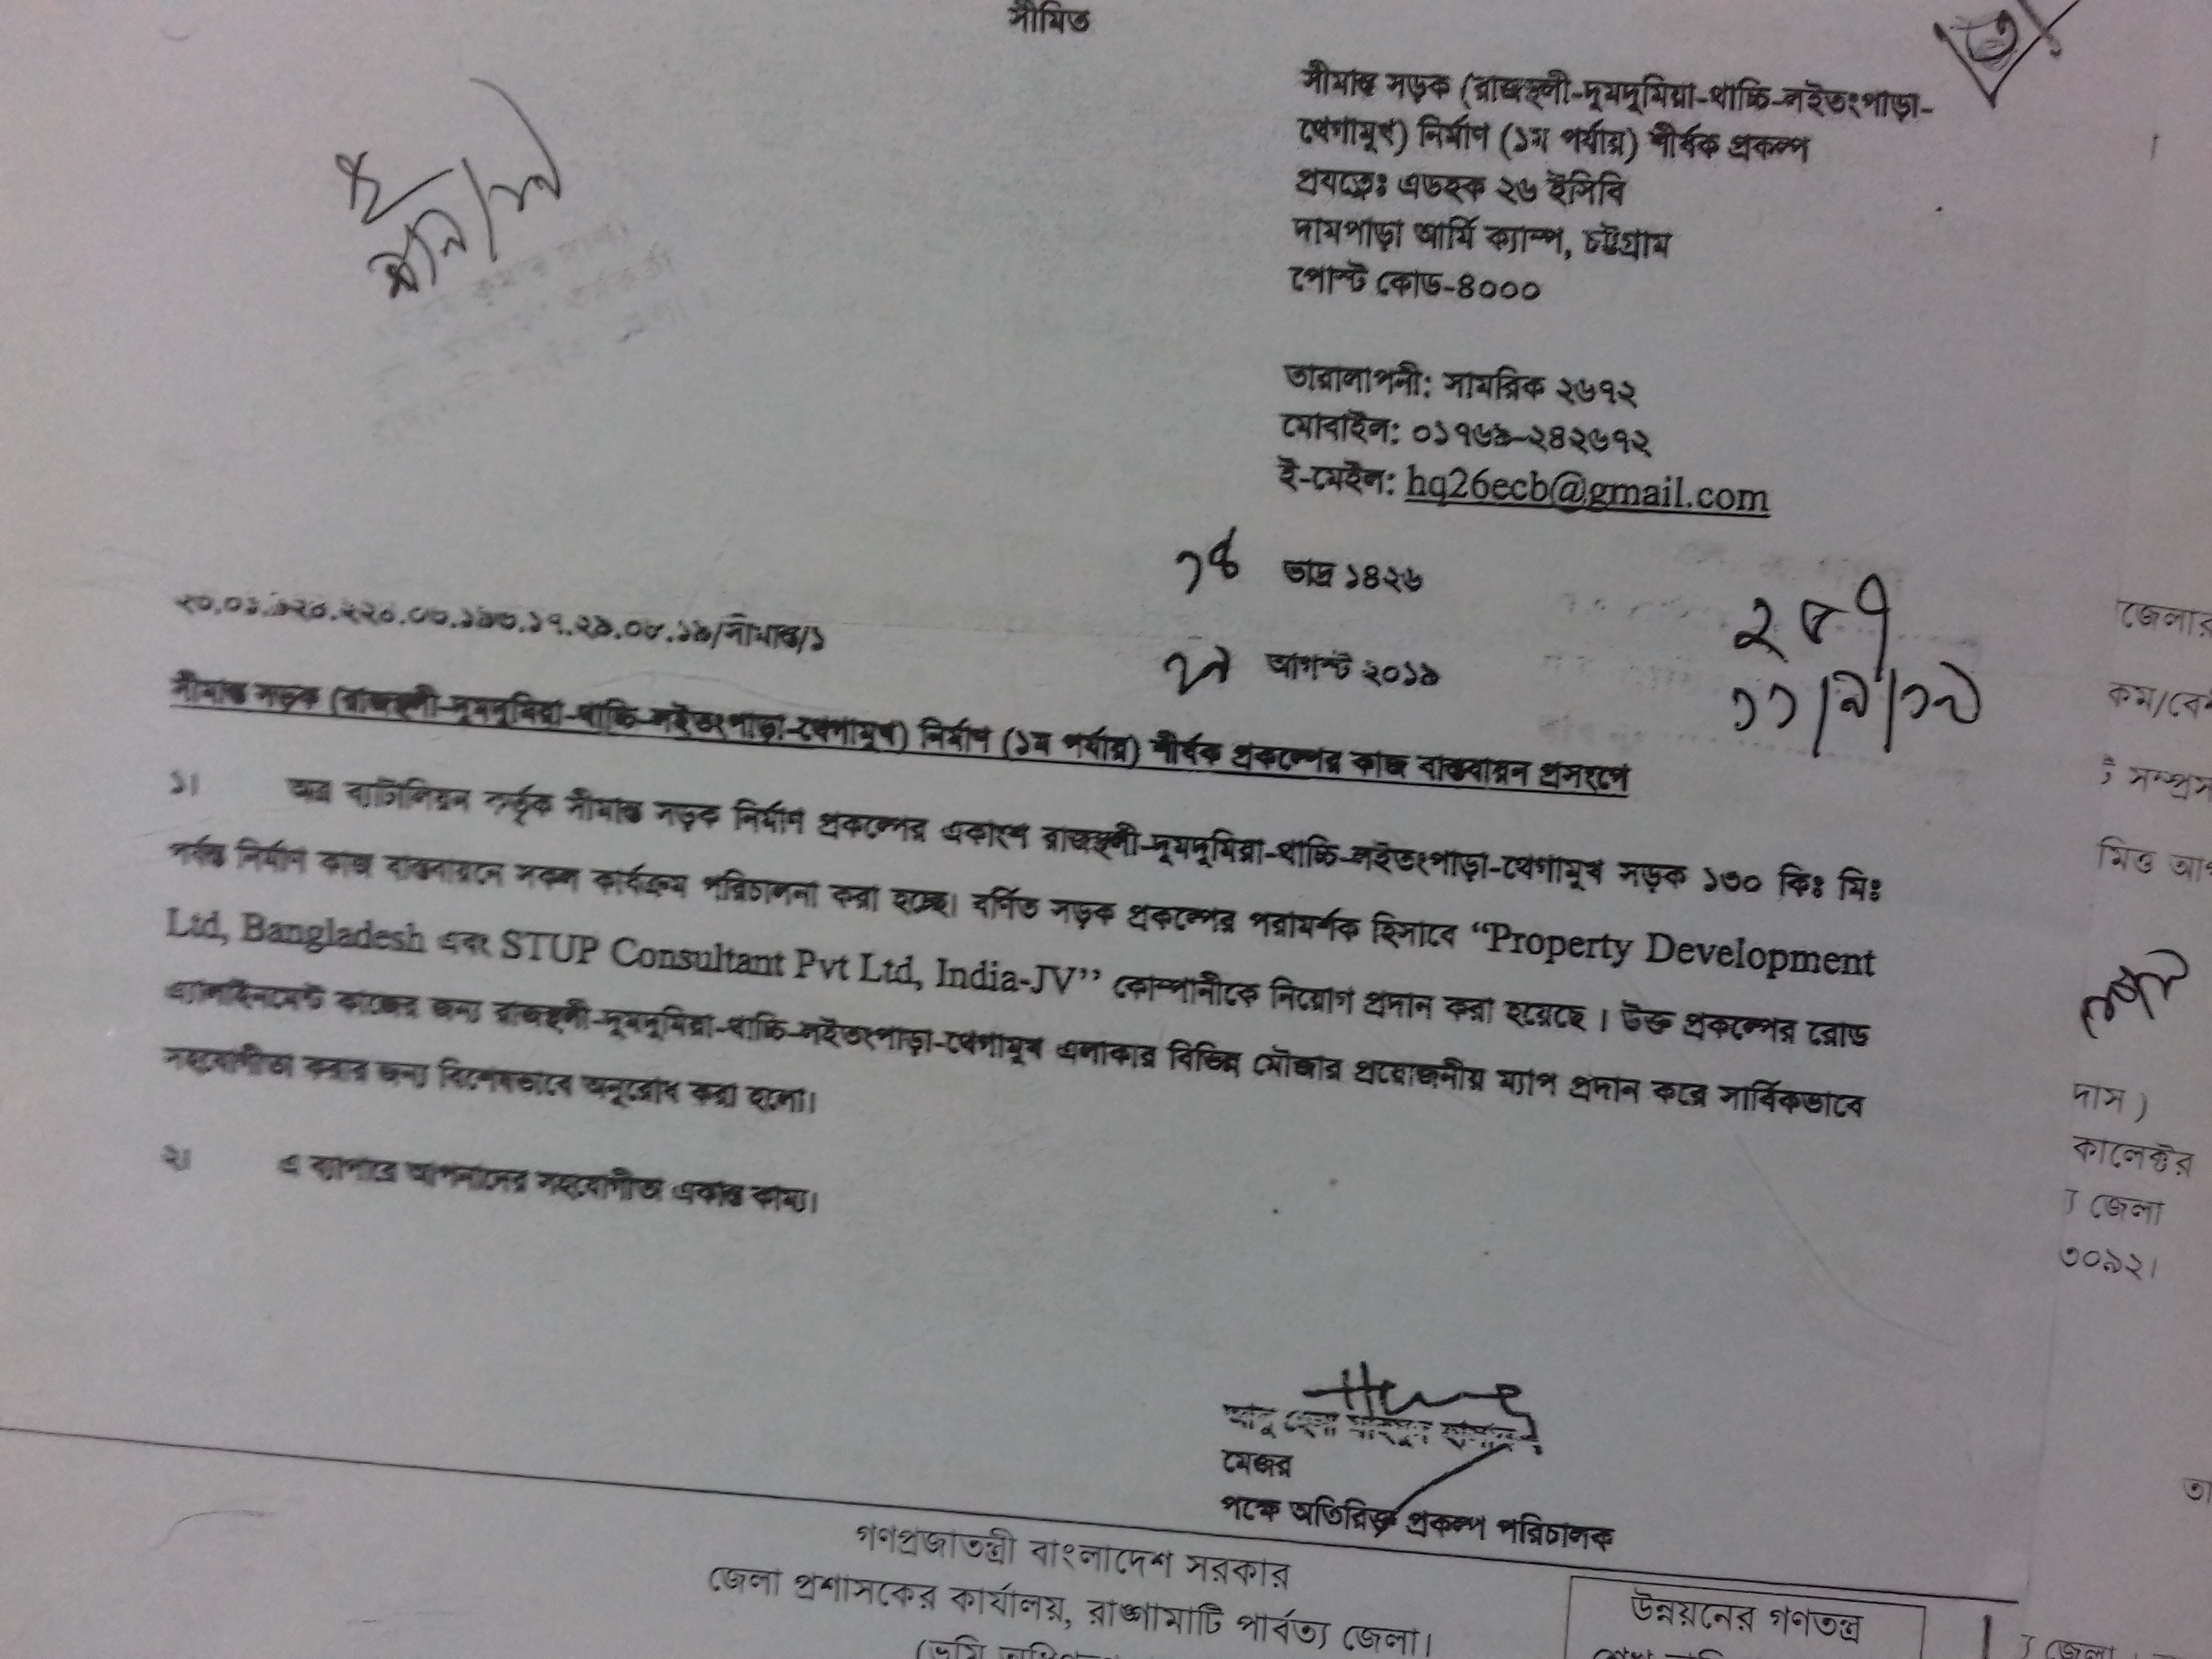 সীমিত
৩
সীমান্ত সড়ক (রাজস্থলী-দুমদুমিয়া-থাচ্চি-লইতংপাড়া-
থেগামুখ) নির্মাণ (১ম পর্যায়) শীর্ষক প্রকল্প
প্রযত্নেঃ এডহক ২৬ ইসিবি
দামপাড়া আর্মি ক্যাম্প, চট্টগ্রাম
পোস্ট কোড-৪০০০
তারালাপনী: সামরিক ২৬৭২
মোবাইল: ০১৭৬৯-২৪২৬৭২
ই-মেইল: hq26ecb@gmail.com
ভাদ্র ১৪২৬
আগস্ট ২০১৯
২৮৭
১১/৯/১৯
সীমান্ত সড়ক (রাজস্থলী-দুমদুমিয়া-থাচ্চি-লইতংপাড়া-থেগামুখ) নির্মাণ (১ম পর্যায়) শীর্ষক প্রকল্পের কাজ বাস্তবায়ন প্রসংগে
১। অত্র ব্যাটালিয়ন কর্তৃক সীমান্ত সড়ক নির্মাণ প্রকল্পের একাংশ রাজস্থলী-দুমদুমিয়া-থাচ্চি-লইতংপাড়া-থেগামুখ সড়ক ১৩০ কিঃ মিঃ
পর্যন্ত নির্মাণ কাজ বাস্তবায়নে সকল কার্যক্রম পরিচালনা করা হচ্ছে। বর্ণিত সড়ক প্রকল্পের পরামর্শক হিসাবে “Property Development
Ltd, Bangladesh এবং STUP Consultant Pvt Ltd, India-JV” কোম্পানীকে নিয়োগ প্রদান করা হয়েছে। উক্ত প্রকল্পের রোড
এ্যালাইনমেন্ট কাজের জন্য রাজস্থলী-দুমদুমিয়া-থাচ্চি-লইতংপাড়া-থেগামুখ এলাকার বিভিন্ন মৌজার প্রয়োজনীয় ম্যাপ প্রদান করে সার্বিকভাবে
সহযোগীতা করার জন্য বিশেষভাবে অনুরোধ করা হলো।
২। এ ব্যাপারে আপনাদের সহযোগীতা একান্ত কাম্য।
মেজর
পক্ষে অতিরিক্ত প্রকল্প পরিচালক
গণপ্রজাতন্ত্রী বাংলাদেশ সরকার
জেলা প্রশাসকের কার্যালয়, রাঙ্গামাটি পার্বত্য জেলা।
উন্নয়নের গণতন্ত্র
জেলার
কম/বে
সম্প্রস
দাস )
কালেক্টর
জেলা
৩০৯২।